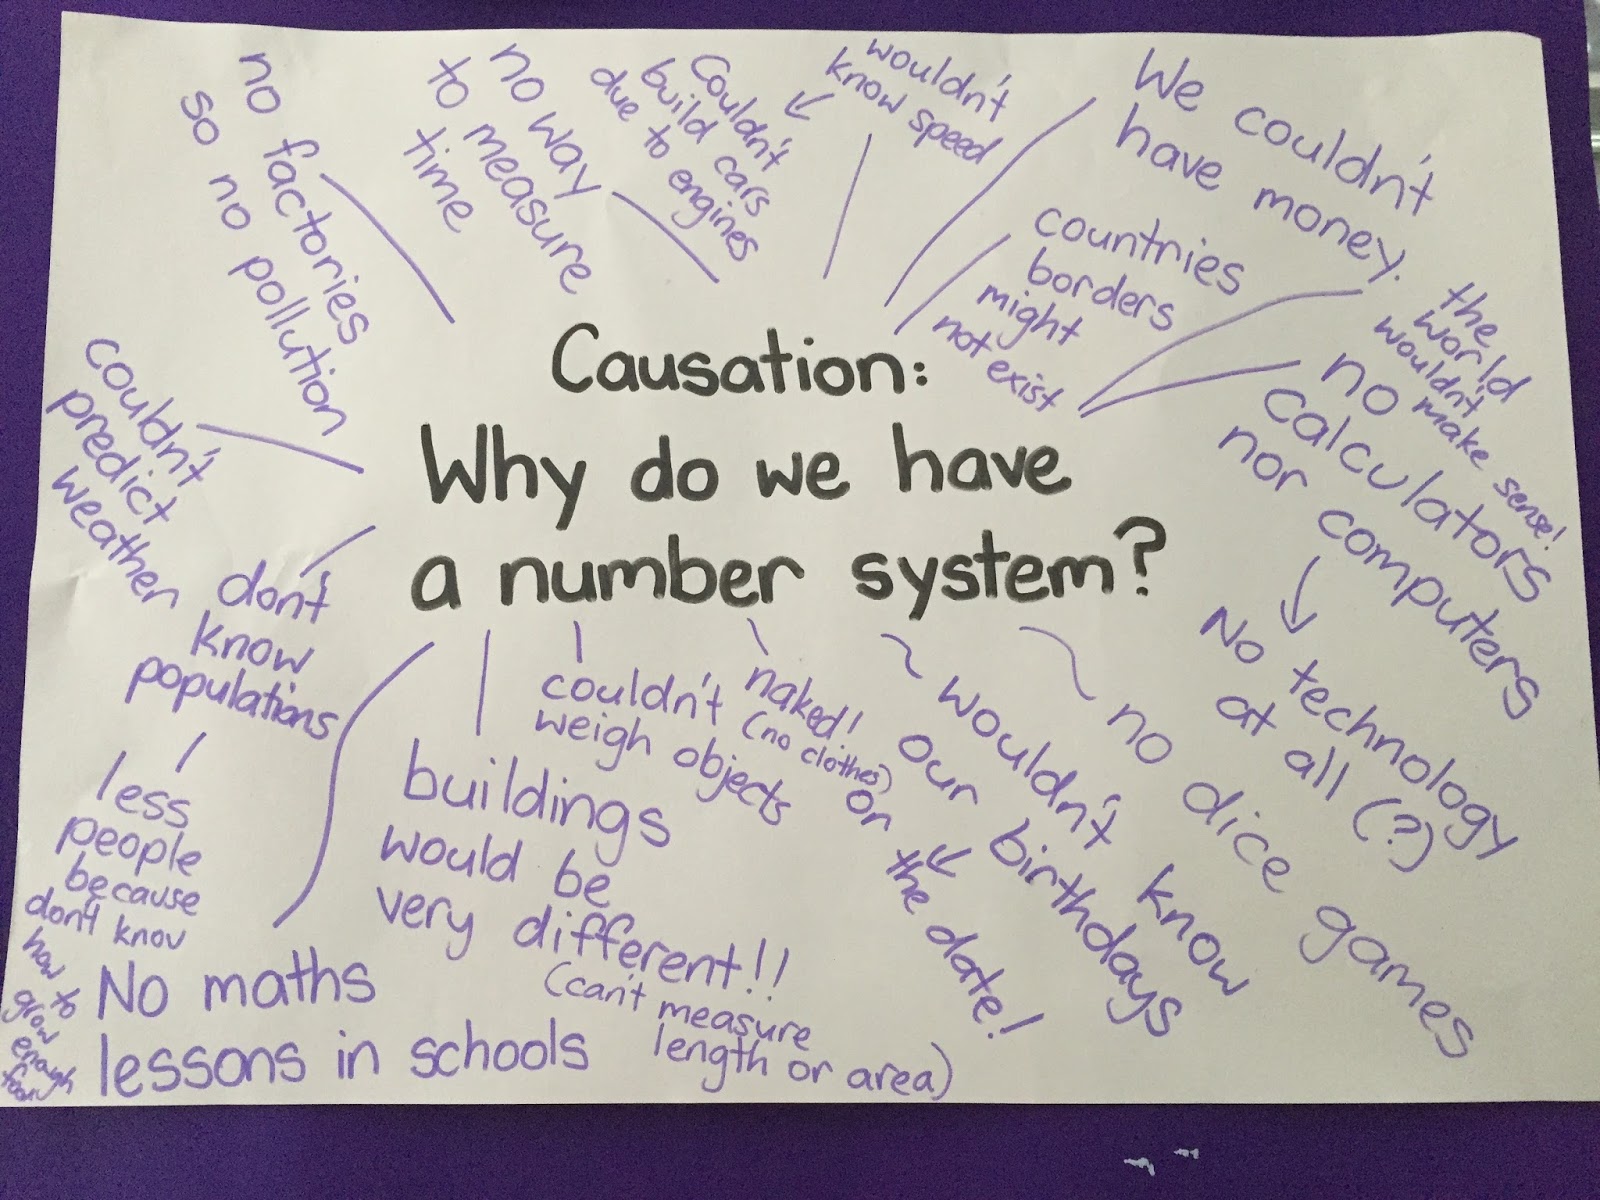 Causation:
Why do we have
a number system?
no factories
so no pollution
no way
to measure
time
Couldn't
build cars
due to engines
wouldn't
know speed
We couldn't
have money.
countries
borders
might
not exist
the
world
wouldn't
make sense!
no
calculators
nor computers
No technology
at all (?)
no dice games
wouldn't know
our birthdays
or
the date!
naked!
(no clothes)
couldn't
weigh objects
buildings
would be
very different!!
(can't measure
length or area)
No maths
lessons in schools
don't
know
populations
less
people
because
don't know
how to
grow
enough
food
couldn't
predict
weather